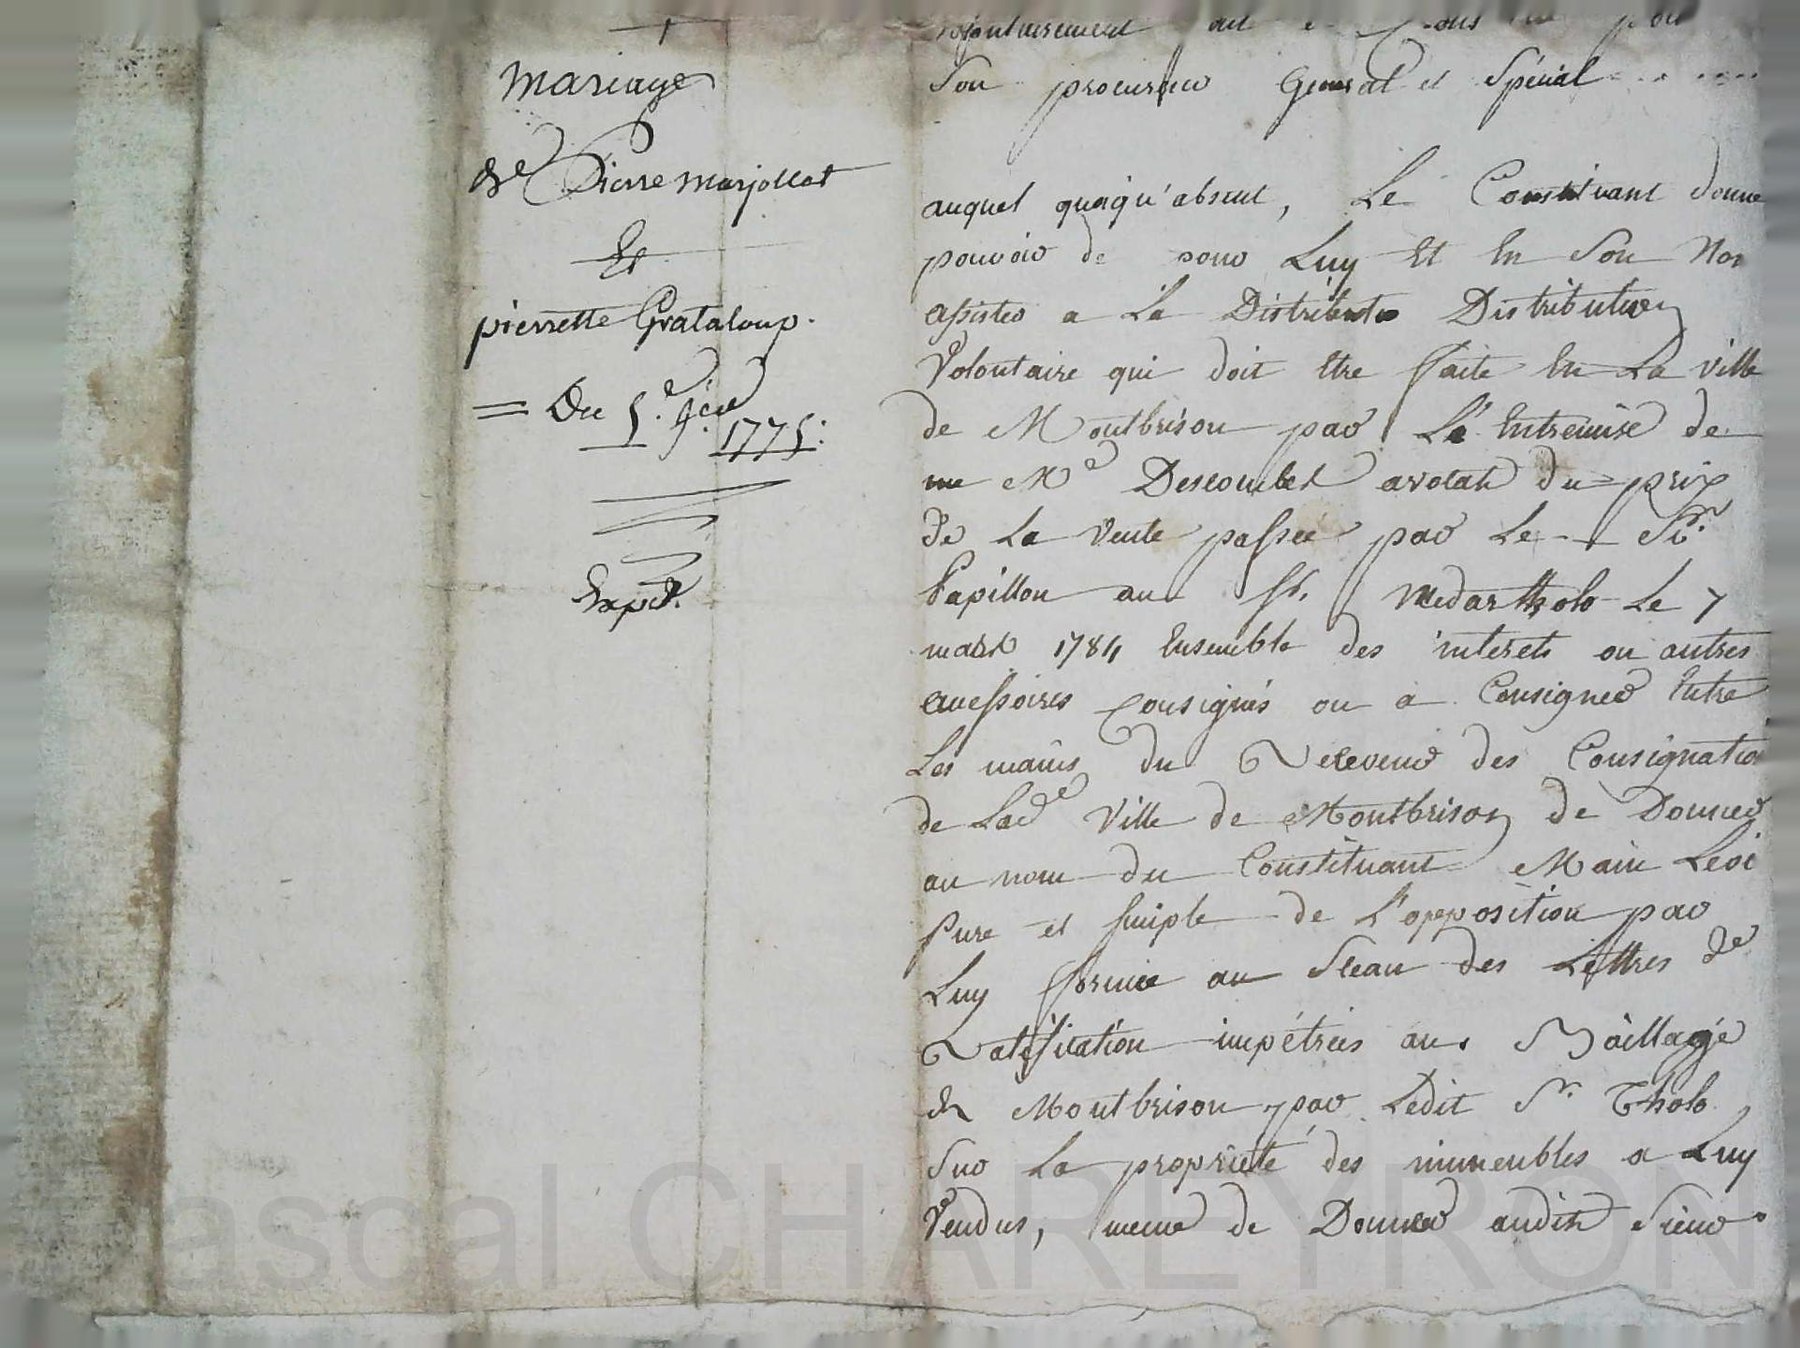 mariage
de Pierre marjollat
Et
pierrette Grataloup.
= Du 5.e 9.bre
1775.
Expd.
Son procureur General et Spécial
auquel quoiqu'absent, Le Constituant donne
pouvoir de pour Luy Et En Son Nom
assister a La Distribution Distribution
Volontaire qui doit Etre faite En La ville
de Montbrison par L'Entremise de
me Me Descombes avocat du prix
de La Vente passée par Le Sr.
Papillon au Sr. Medar tholo Le 7
mars 1784 Ensemble des interets ou autres
accessoires Consignés ou a Consigner Entre
Les mains du Receveur des Consignation
de Lade Ville de Montbrison de Donner
au nom du Constituant Main Levé
Pure et Simple de L'opposition par
Luy formée au Sceau des Lettres de
Ratification impétrées au Baillage
de Montbrison par Ledit Sr. Tholo
Sur La propriété des immeubles a Luy
Vendus, meme de Donner audit Sieur
Pascal CHAREYRON